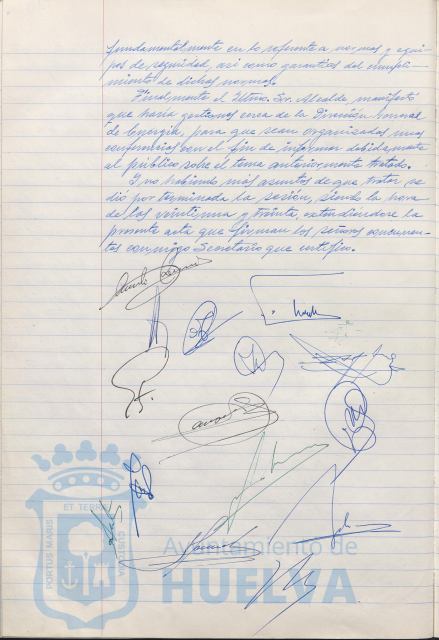 fundamentalmente en lo referente a normas y equi-
pos de seguridad, así como garantías del cumpli-
miento de dichas normas.
Finalmente el Iltmo. Sr. Alcalde manifestó
que haría gestiones cerca de la Dirección General
de Energía, para que sean organizadas unas
conferencias con el fin de informar debidamente
al público sobre el tema anteriormente tratado.
Y no habiendo más asuntos de que tratar se
dió por terminada la sesión, siendo la hora
de las veintiuna y treinta, extendiéndose la
presente acta que firman los señores concurren-
tes conmigo Secretario que certifico.
ET TERRÆ
PORTUS MARIS
CUSTODIA
Ayuntamiento de
HUELVA